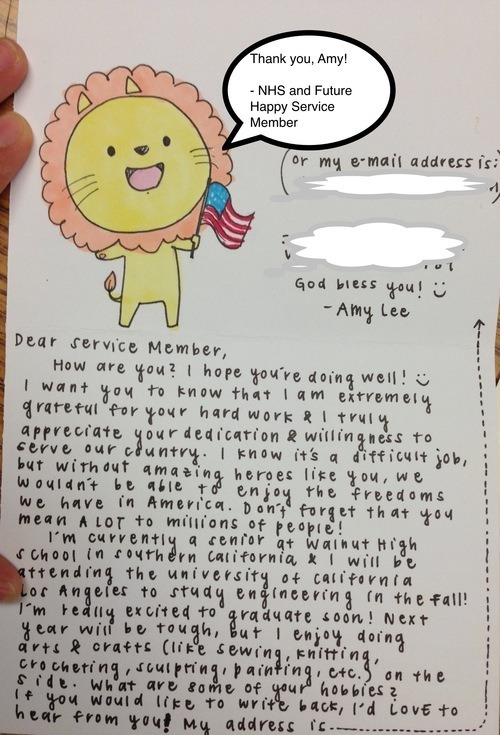 Thank you, Amy!
- NHS and Future
Happy Service
Member
Dear Service Member,
How are you? I hope you're doing well! :)
I want you to know that I am extremely
grateful for your hard work & I truly
appreciate your dedication & willingness to
serve our country. I know it's a difficult job,
but without amazing heroes like you, we
wouldn't be able to enjoy the freedoms
we have in America. Don't forget that you
mean A LOT to millions of people!
I'm currently a senior at Walnut High
School in southern California & I will be
attending the university of California
Los Angeles to study engineering in the Fall!
I'm really excited to graduate soon! Next
year will be tough, but I enjoy doing
arts & crafts (like sewing, knitting,
crocheting, sculpting, painting, etc.) on the
side. What are some of your hobbies?
If you would like to write back, I'd LOVE to
hear from you! My address is
(or my e-mail address is:
God bless you! :)
- Amy Lee